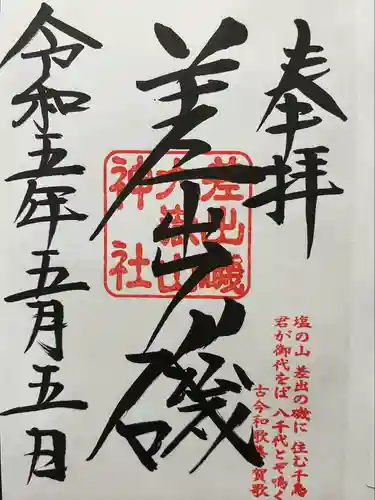 奉拝
差出の磯
差出磯
大嶽山
神社
塩の山 差出の磯に 住む千鳥
君が御代をば 八千代とぞ鳴く
古今和歌集 賀歌
令和五年五月五日